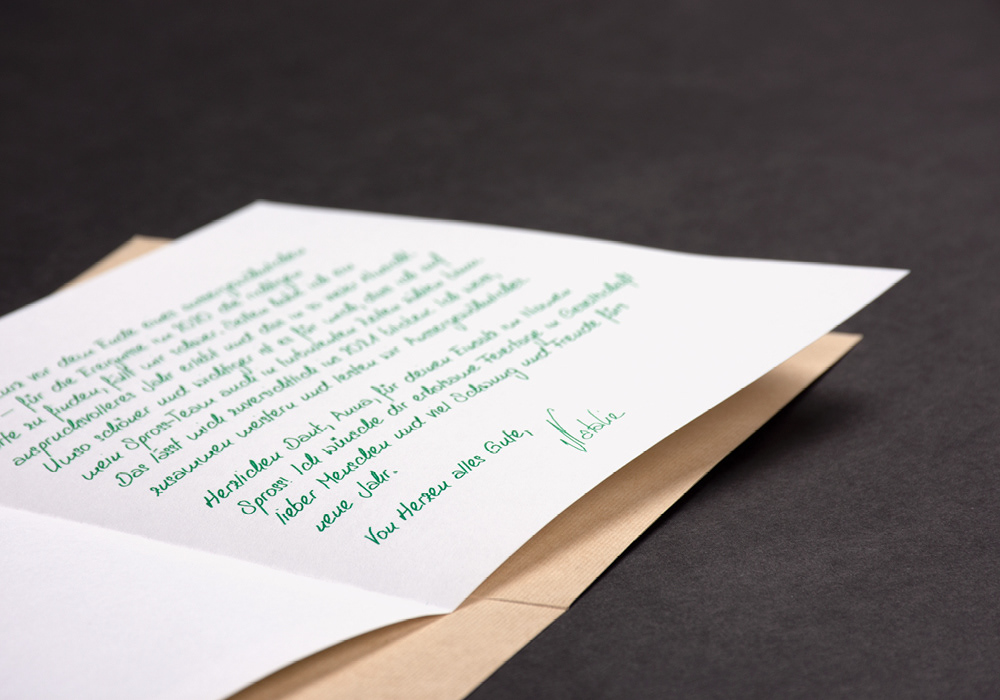 vor dem Ende eines aussergewöhnlichen
– für die Ereignisse im 2020 die richtigen
zu finden, fällt mir schwer. Selten habe ich ein
anspruchsvolleres Jahr erlebt und
Umso schöner und wichtiger ist es für mich, dass ich auf
mein Spross-Team auch in turbulenten Zeiten zählen kann.
Das lässt mich zuversichtlich ins 2021 blicken. Ich weiss,
zusammen meistern und leisten wir Aussergewöhnliches.
Herzlichen Dank, Anna, für deinen Einsatz im Namen
Spross! Ich wünsche dir erholsame Feiertage in Gesellschaft
lieber Menschen und viel Schwung und Freude fürs
neue Jahr.
Von Herzen alles Gute,
Natalie